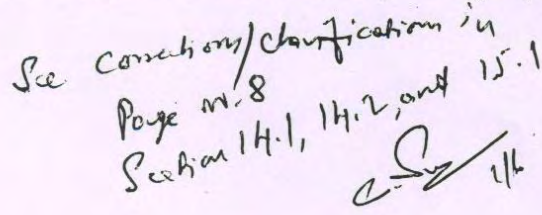 See Corrections/clarifications in
Page no. 8
Section 14.1, 14.2, and 15.1